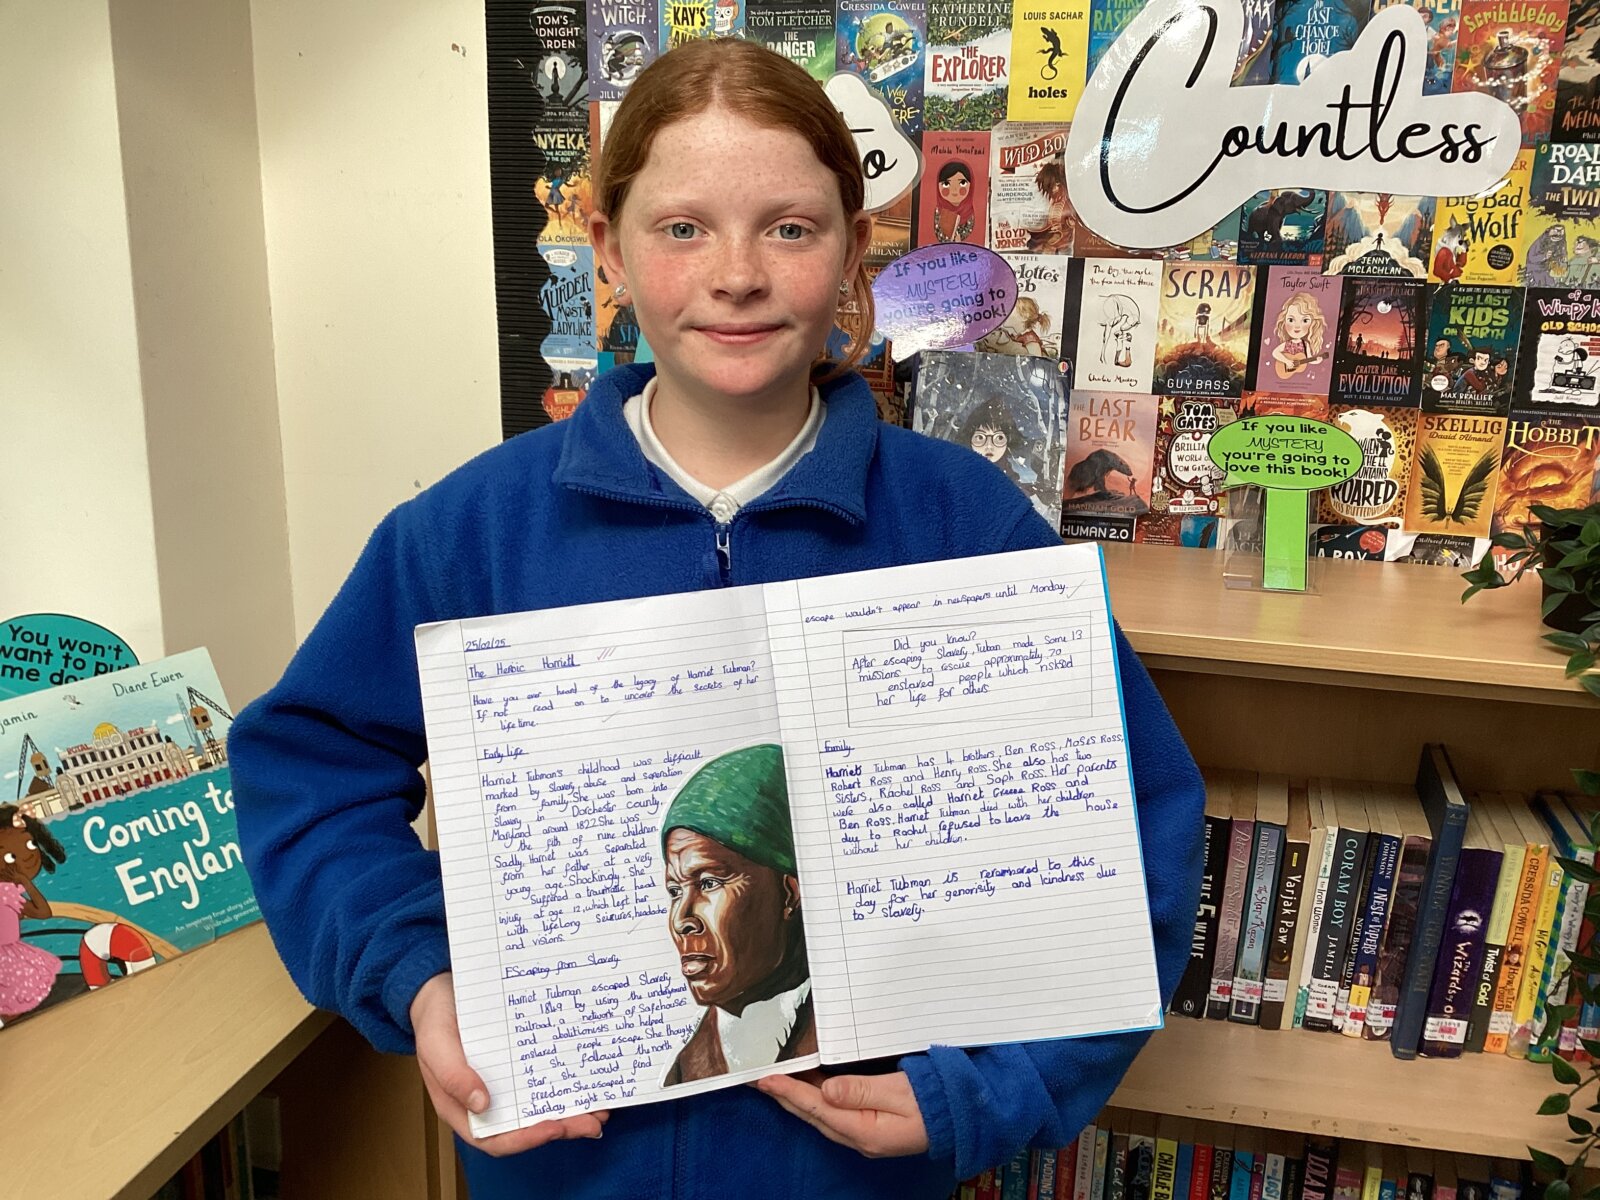 25/02/25
The Heroic Harriett
Have you ever heard of the legacy of Harriet Tubman?
If not read on to uncover the secrets of her
lifetime.
Early life
Harriet Tubman's childhood was difficult
marked by slavery, abuse and separation
from family. She was born into
Slavery in Dorchester county,
Maryland around 1822. She was
the fith of nine children.
Sadly, Harriet was separated
from her father, at a very
young age. Shockingly. She
Suffered a traumatic head
injury at age 12, which left her
with lifelong seizures, headaches
and visions.
Escaping from Slavery
Harriet Tubman escaped Slavery
in 1849 by using the underground
railroad, a network of safehouses
and abolitionists who helped
enslaved people escape. She thought
if she followed the north
star, she would find
freedom. She escaped on
Saturday night so her
escape wouldn't appear in newspapers until Monday.
Did you know?
After escaping Slavery, Tuban made some 13
missions to rescue approximately 70
enslaved people which risked
her life for others
Family
Harriets Tubman has 4 brothers, Ben Ross, Moses Ross,
Robert Ross and Henry Ross. She also has two
Sisters, Rachel Ross and Soph Ross. Her parents
were also called Harriet Greene Ross and
Ben Ross. Harriet Tubman died with her children
due to Rachel refused to leave the house
without her children.
Harriet Tubman is remembered to this
day for her generosity and kindness due
to slavery.
Countless
to
If you like
MYSTERY
you're going to
book!
If you like
MYSTERY
you're going to
love this book!
You won't
want to put
me do
Diane Ewen
jamin
ROYAL PIER
Coming to
England
TOM'S
MIDNIGHT
GARDEN
WITCH
JILL M
KAY'S
TOM FLETCHER
THE
DANGER
CRESSIDA COWELL
KATHERINE
RUNDELL
THE
EXPLORER
LOUIS SACHAR
holes
Scribbleboy
LAST
CHANCE
HOTEL
NYEKA
MURDER
MOST
LADYLIKE
Malala Yousafzai
WILD BOY
ROB
LLOYD
JONES
Big Bad
Wolf
ROAL
DAH
THE TWIT
JENNY
MCLACHLAN
Charlie Mackesy
SCRAP
GUY BASS
Taylor Swift
CRATER LAKE
EVOLUTION
THE LAST
KIDS
ON EARTH
MAX BRALLIER
WIMPY K
OLD SCHOO
THE
LAST
BEAR
HANNAH GOLD
HUMAN 2.0
TOM
GATES
THE
BRILLIA
WORLD OF
TOM GATES
ROARED
SKELLIG
David Almond
The
HOBBIT
A BOY
THE 5TH WAVE
Varjak Paw
the Iron Woman
CORAM BOY
JAMILA
CATHERINE
JOHNSON
A NEST OF
VIPERS
Twist of Gold
CRESSIDA COWELL